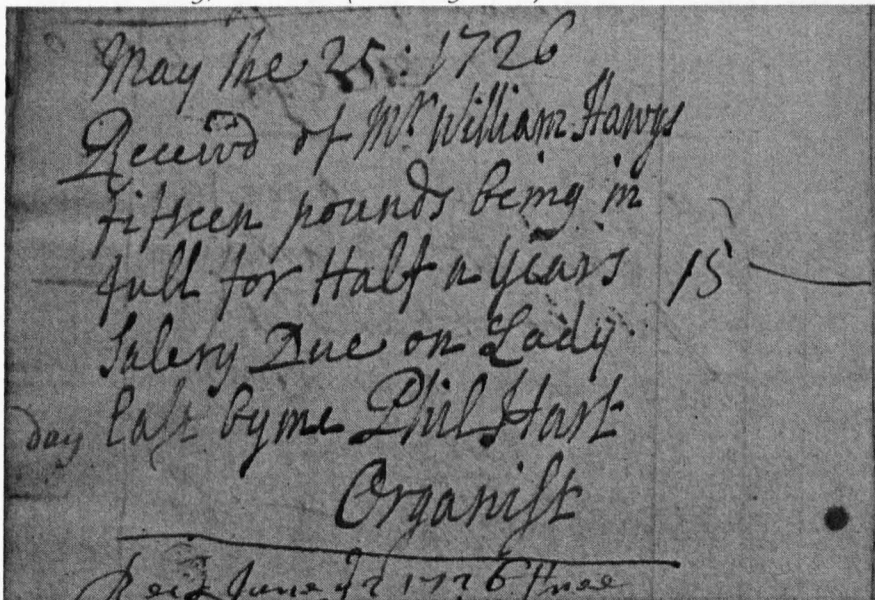 May the 25: 1726
Receivd of Mr William Hawys
fifteen pounds being in
full for Half a years 15
Salery Due on Lady
day last by me Phil Hart
Organist
Recd June 1726 three